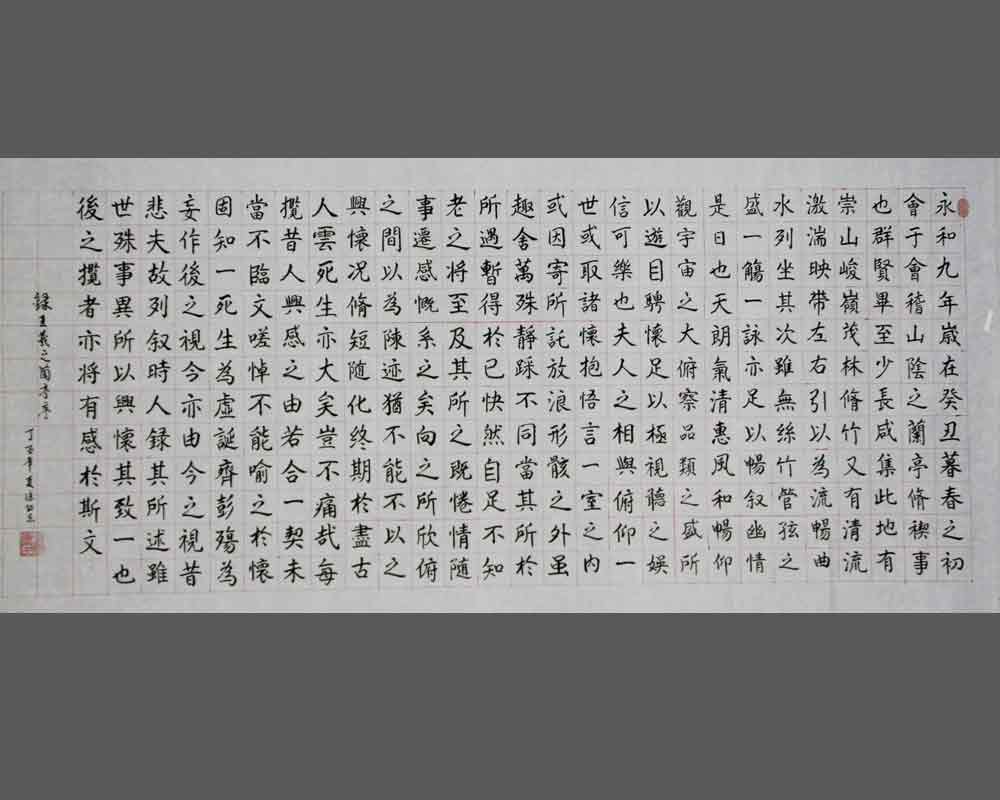 永和九年歲在癸丑暮春之初
會于會稽山陰之蘭亭脩稧事
也群賢畢至少長咸集此地有
崇山峻嶺茂林脩竹又有清流
激湍映帶左右引以為流暢曲
水列坐其次雖無絲竹管弦之
盛一觴一詠亦足以暢叙幽情
是日也天朗氣清惠風和暢仰
觀宇宙之大俯察品類之盛所
以遊目聘懷足以極視聽之娛
信可樂也夫人之相與俯仰一
世或取諸懷抱悟言一室之内
或因寄所託放浪形骸之外虽
趣舍萬殊靜踩不同當其所於
所遇暫得於己快然自足不知
老之將至及其所之既惓情随
事遷感慨系之矣向之所欣俯
之間以為陳迹猶不能不以之
興懷况脩短随化终期於盡古
人雲死生亦大矣豈不痛哉每
攬昔人興感之由若合一契未
當不臨文嗟悼不能喻之於懷
固知一死生為虛誕齊彭殤為
妄作後之視今亦由今之視昔
悲夫故列叙時人録其所述雖
世殊事異所以興懷其致一也
後之攬者亦将有感於斯文
録王羲之蘭亭序 丁酉年夏